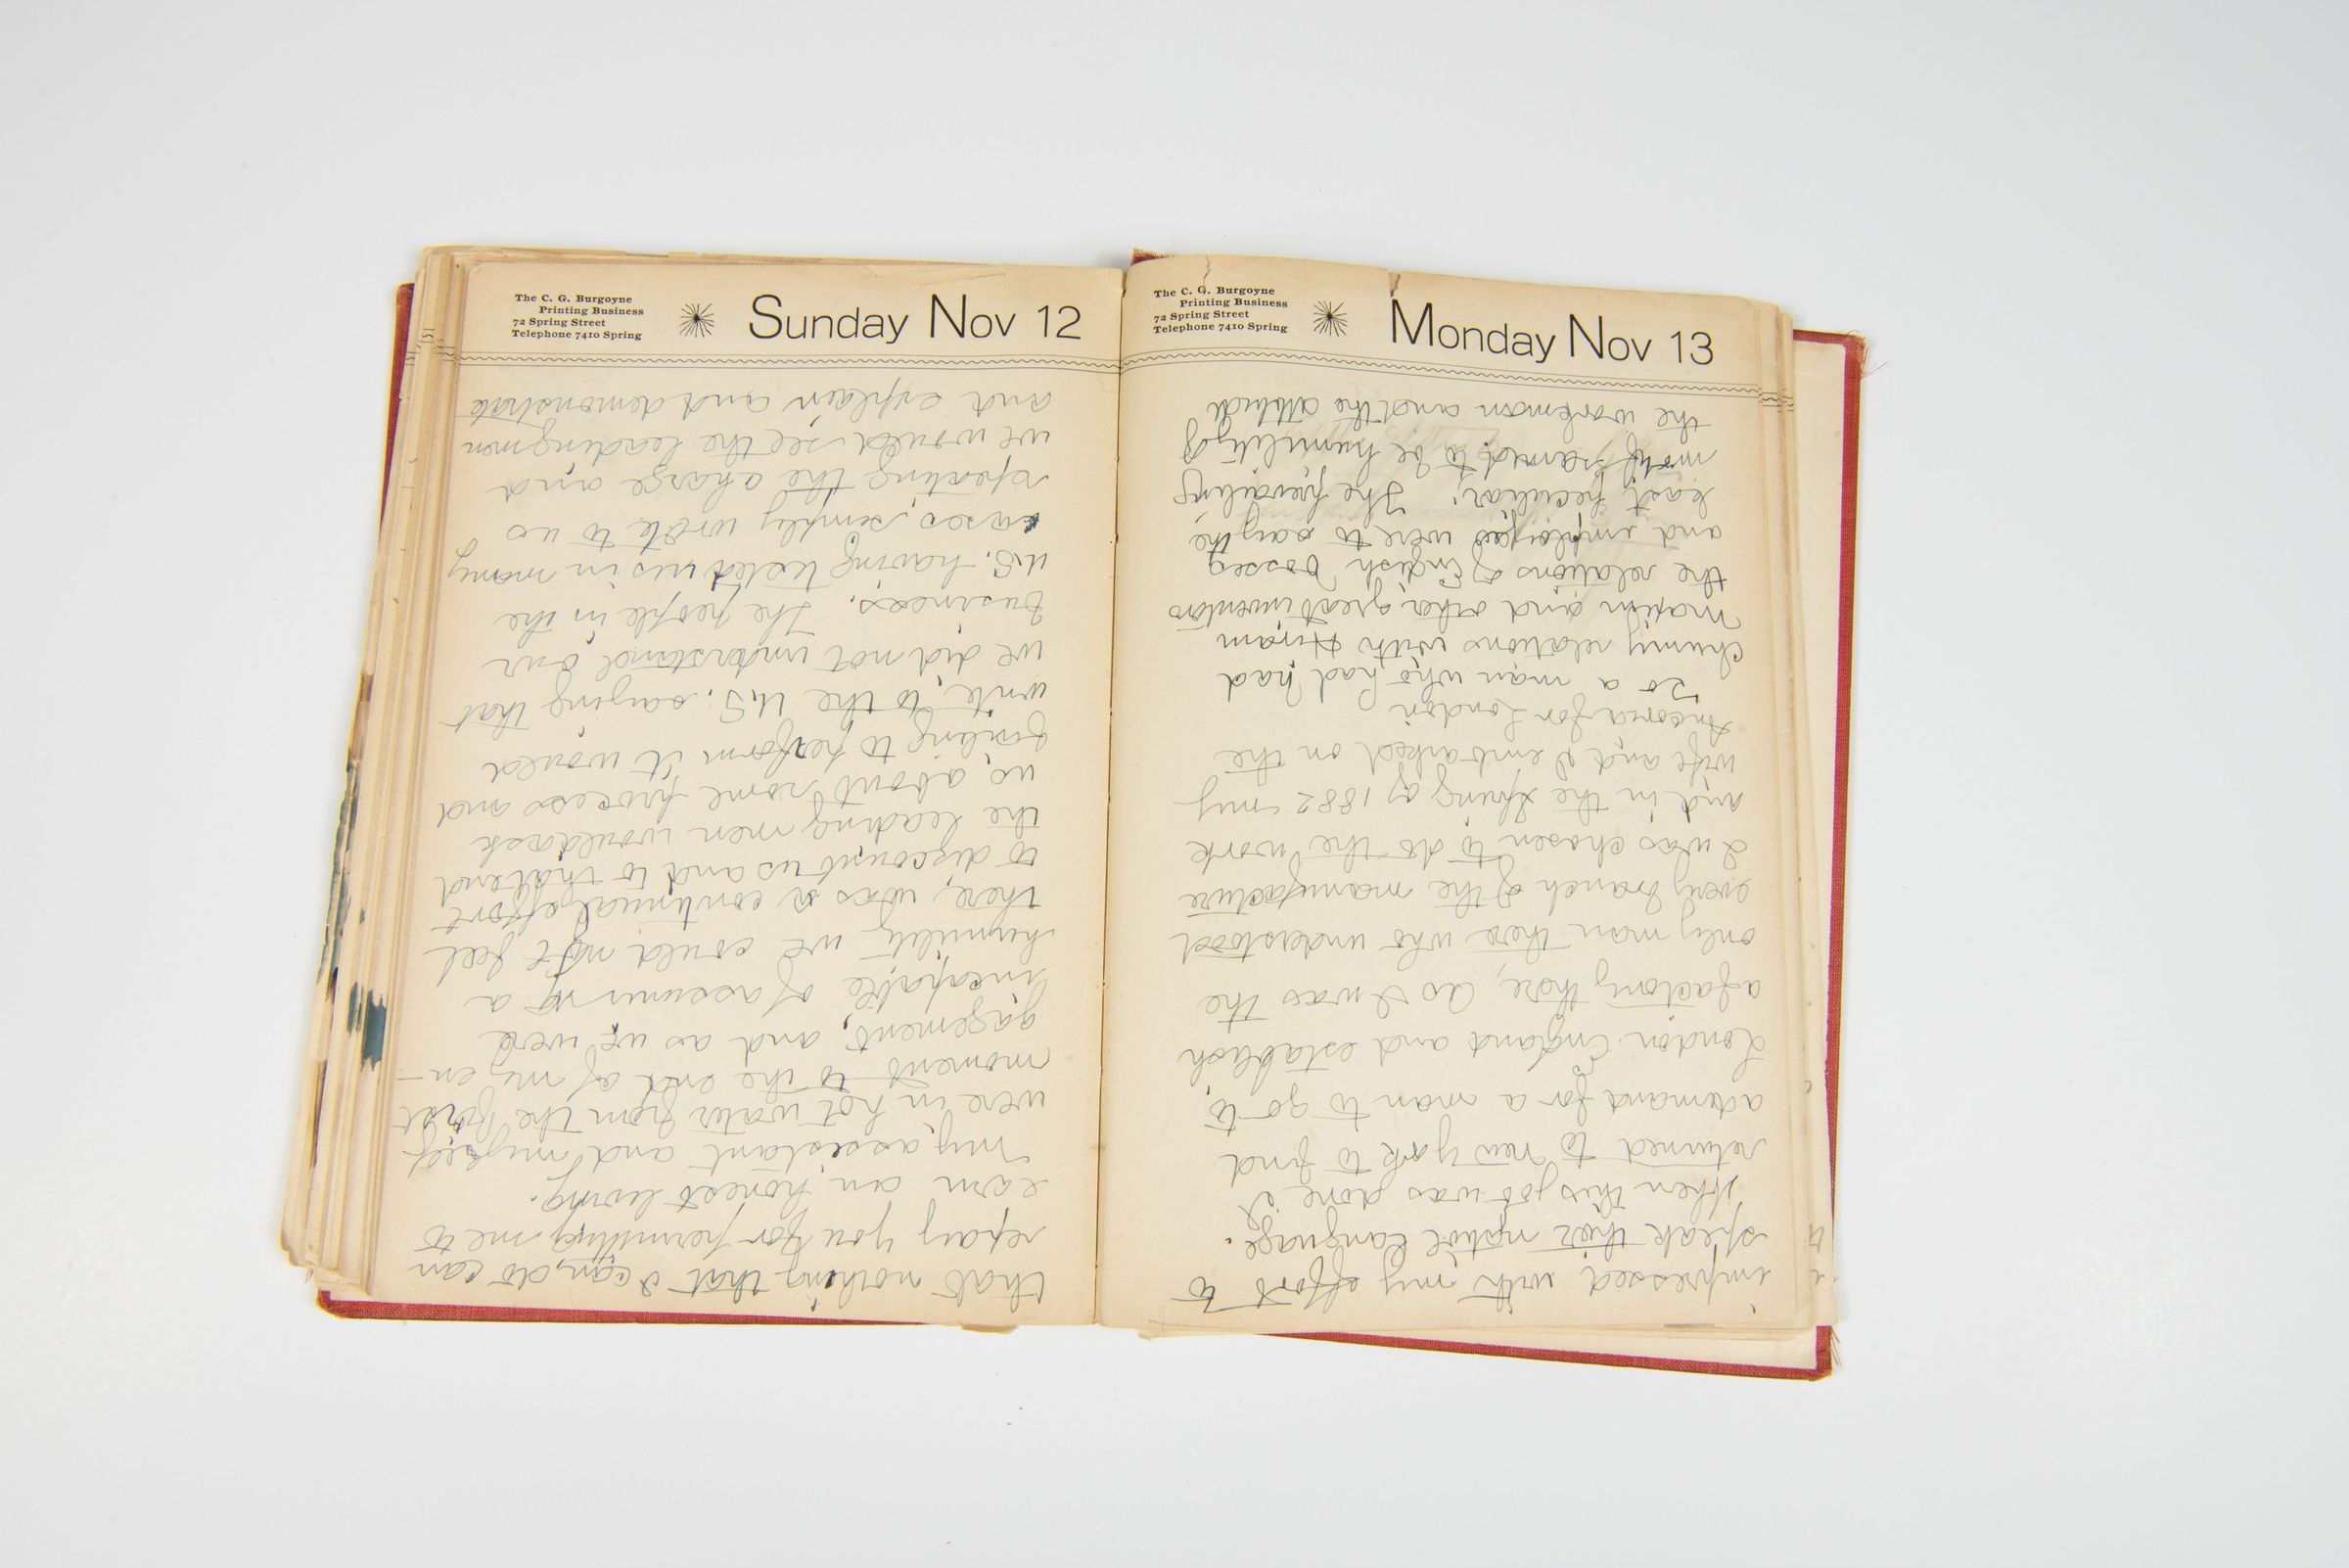 The C. G. Burgoyne
Printing Business
72 Spring Street
Telephone 7410 Spring
Sunday Nov 12
The C. G. Burgoyne
Printing Business
72 Spring Street
Telephone 7410 Spring
Monday Nov 13
impressed with my effort to
speak their native language.
When this job was done I
returned to new york to find
a demand for a man to go to
London England and establish
a factory there, as I was the
only man there who understood
every branch of the manufacture
I was chosen to do the work
and in the spring of 1882 my
wife and I embarked on the
for London
To a man who had had
chumy relations with Hiram
maxim and other great inventors
the relations of English bosses
and employees were to say the
least peculiar. The prevailing
motif seamed to be humility of
the workman and the attitude
that nothing that I can do can
repay you for permitting me to
earn an honest living.
My assistant and myself
were in hot water from the first
moment to the end of my en-
gagement, and as we were
incapable of assuming a
humility we could not feel
there, was a continual effort
to discount us and to that end
the leading men would ask
us about some process and
failing to perform it would
write to the U.S. saying that
we did not understand our
business. The people in the
U.S. having tested us in many
cases, simply wrote to us
repeating the charge and
we would see the leadingmen
and explain and demonstrate